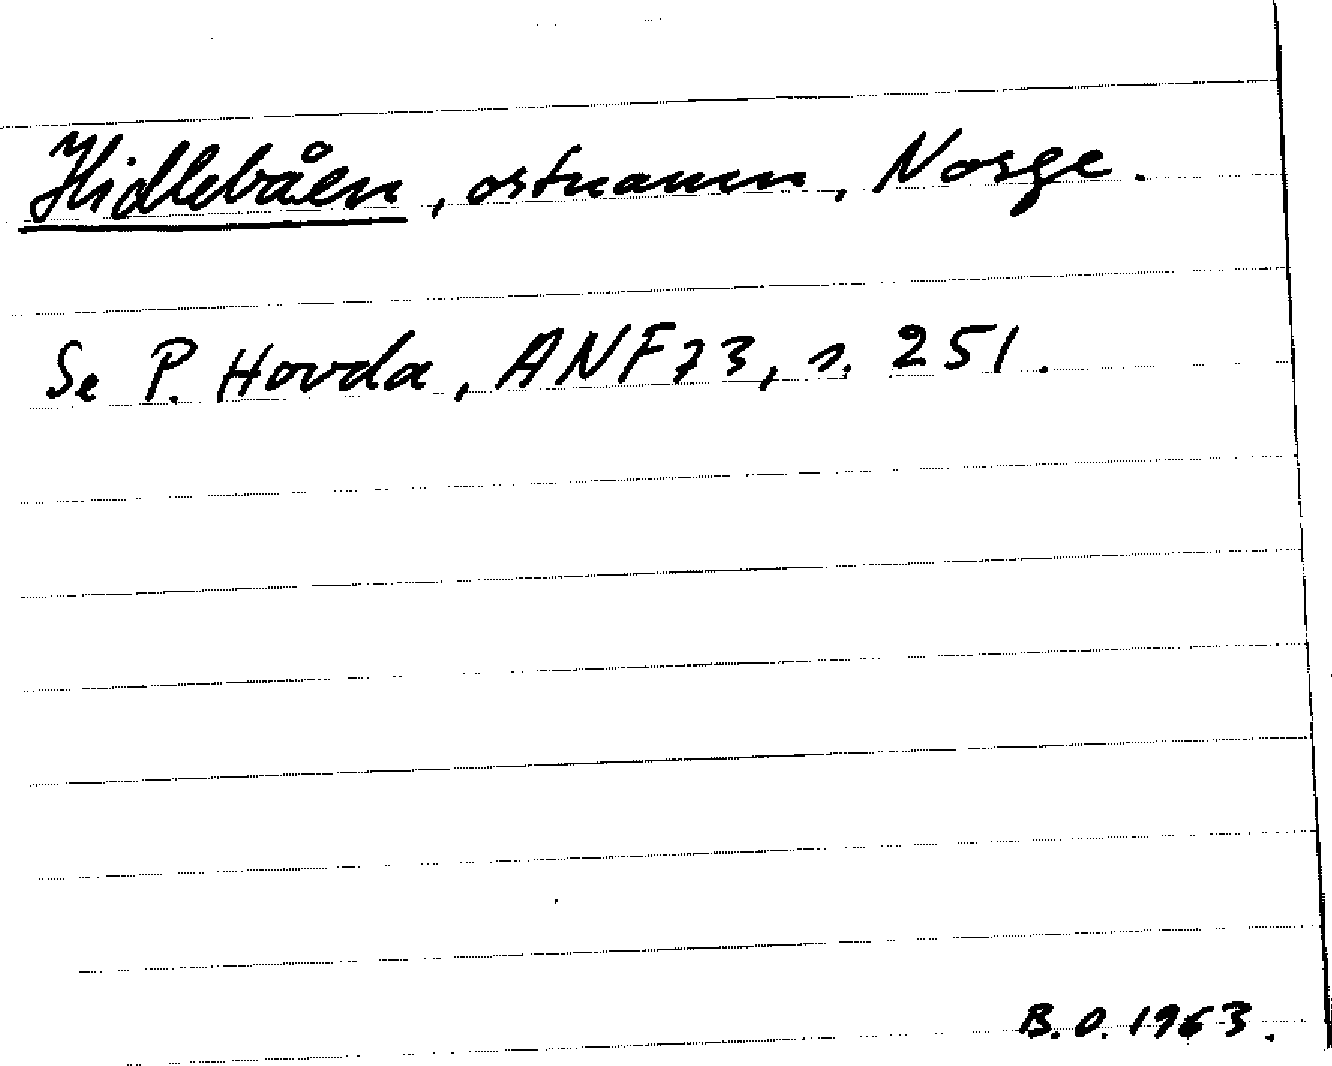 Hidlebåen, ortnamn, Norge.
Se P. Hovda, ANF 73, s. 251.
B.O. 1963.